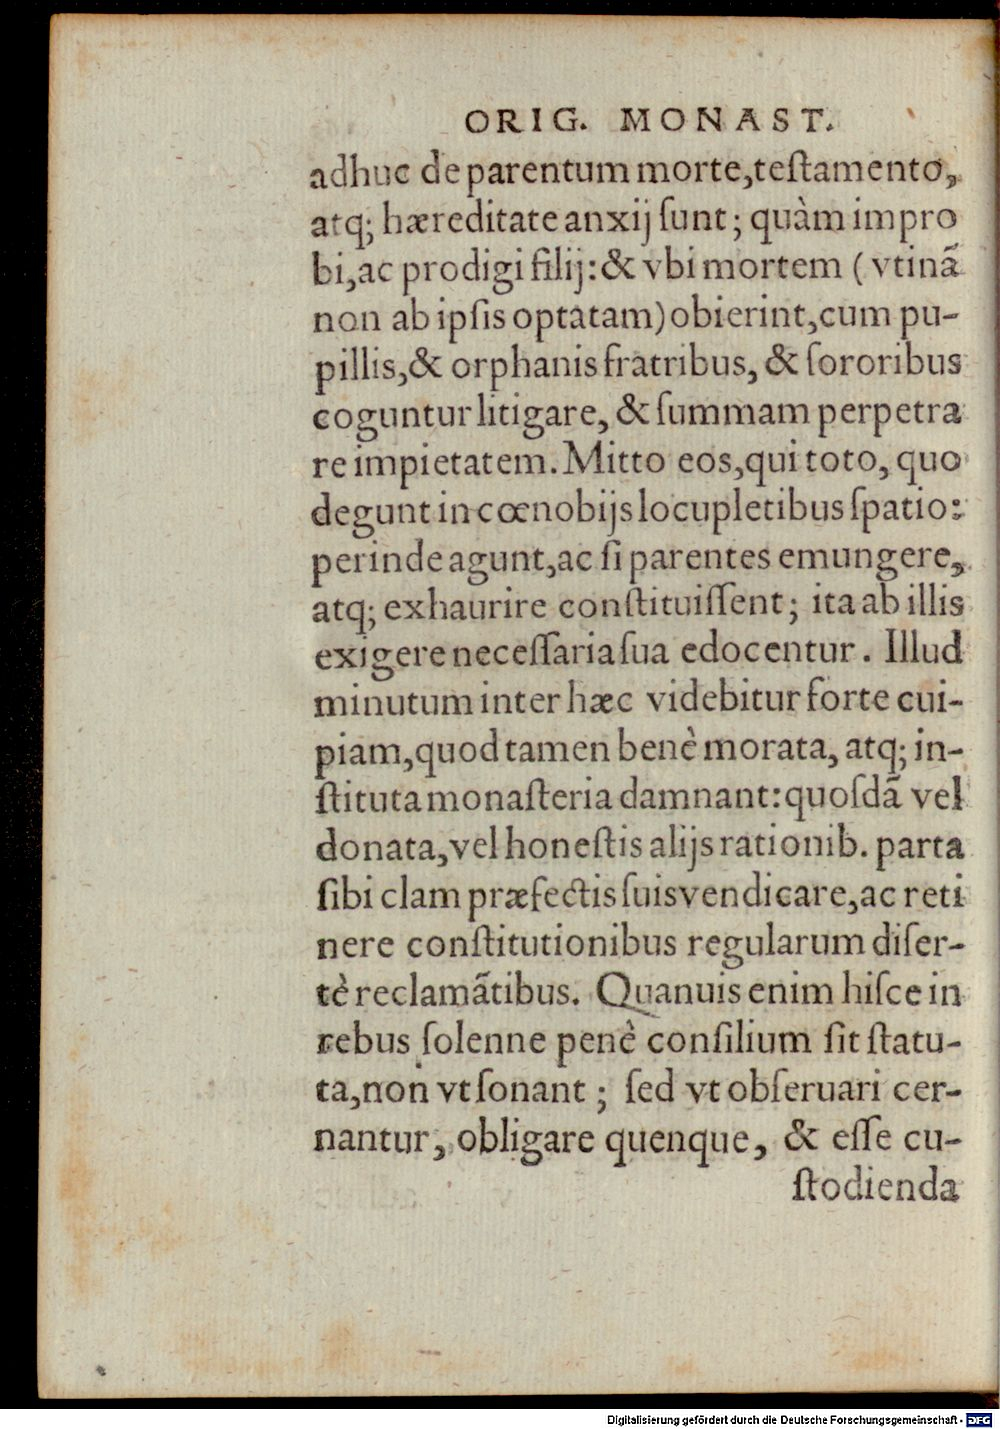 ORIG. MONAST.
adhuc de parentum morte, teſtamento,
atq; hæreditate anxij ſunt; quàm impro
bi, ac prodigi filij: & vbi mortem (vtinã
non ab ipſis optatam) obierint, cum pu-
pillis, & orphanis fratribus, & ſororibus
coguntur litigare, & ſummam perpetra
re impietatem. Mitto eos, qui toto, quo
degunt in cœnobijs locupletibus ſpatio:
perinde agunt, ac ſi parentes emungere,
atq; exhaurire conſtituiſſent; ita ab illis
exigere neceſſaria ſua edocentur. Illud
minutum inter hæc videbitur forte cui-
piam, quod tamen benè morata, atq; in-
ſtituta monaſteria damnant: quoſdã vel
donata, vel honeſtis alijs rationib. parta
ſibi clam præfectis ſuis vendicare, ac reti
nere conſtitutionibus regularum diſer-
tè reclamãtibus. Quanuis enim hiſce in
rebus ſolenne penè conſilium ſit ſtatu-
ta, non vt ſonant; ſed vt obſeruari cer-
nantur, obligare quenque, & eſſe cu-
ſtodienda
Digitalisierung gefördert durch die Deutsche Forschungsgemeinschaft - DFG